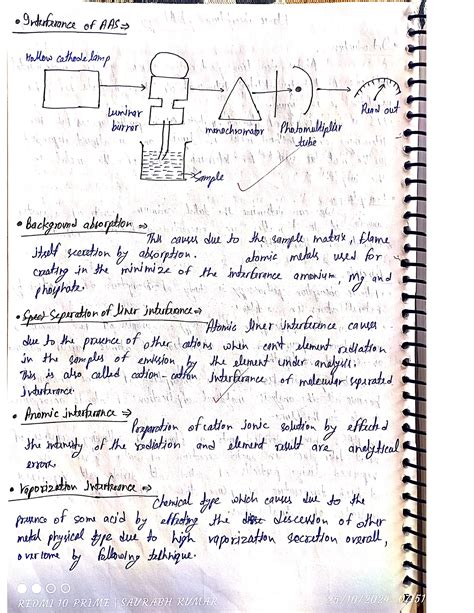 • Interference of AAS ⇒
Hollow cathode lamp
Luminar
birror
monochromator
Photomultiplier
tube
Read out
Sample
• Background absorption ⇒
This causes due to the sample matrix, flame
itself secretion by absorption. atomic metals used for
creating in the minimize of the interference amonium, Mg and
phosphate.
Separation of liner interference ⇒
Atomic liner interference causes
due to the presence of other cations when can't element radiation
in the samples of emission by the element under analysis.
This is also called cation-cation interference of molecular separated
interference.
• Anomic interference ⇒
Preparation of cation ionic solution by effected
the intensity of the radiation and element result are analytical
error.
• Vaporization Interference ⇒
Chemical type which causes due to the
presence of some acid by effecting the of other
metal physical type due to high vaporization secretion overall,
overcome by following technique.
REDMI 10 PRIME | SAURABH KUMAR